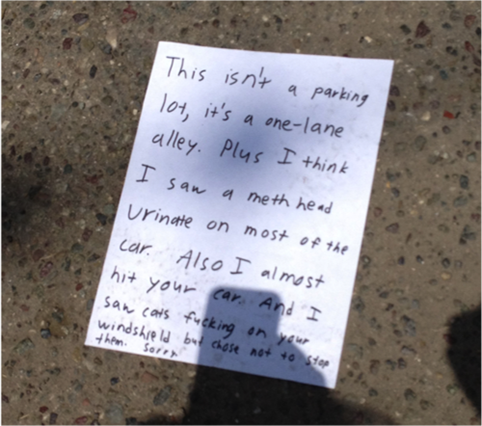 This isn't a parking
lot, it's a one-lane
alley. Plus I think
I saw a meth head
Urinate on most of the
car. Also I almost
hit your car. And I
saw cats fucking on your
windshield but chose not to stop
them. Sorry.